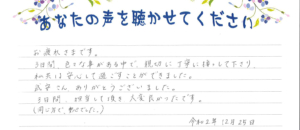 あなたの声を聴かせてください
お疲れさまです。
3日間、色々な事がある中で、親切に丁寧に接して下さり、
私共は安心して過ごすことができました。
さん、ありがとうございました。
3日間、担当して頂き大変良かったです。
令和2年12月25日